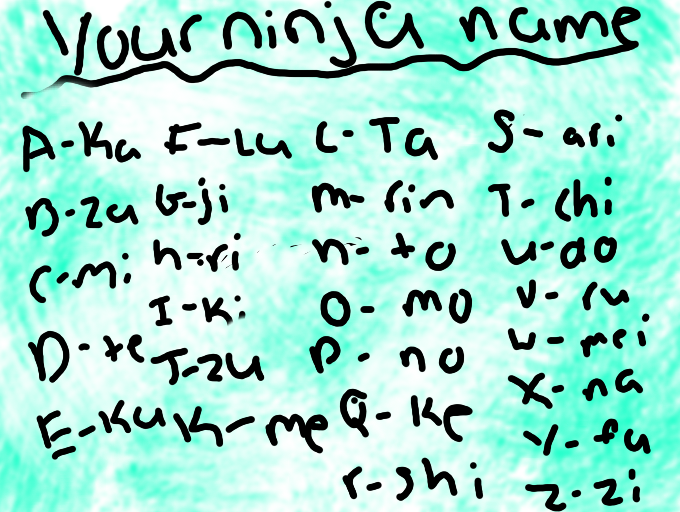 Your ninja name
A-Ka
B-Za
C-mi
D-te
E-Ku
F-Lu
G-ji
h-ri
I-Ki
J-zu
K-me
L-Ta
m-rin
n-to
O-mo
P-no
Q-Ke
r-shi
S-ari
T-chi
u-do
V-ru
W-mei
X-na
Y-fu
Z-zi